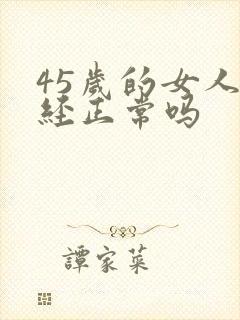 45歲的女人
經正常吗
譚家菜